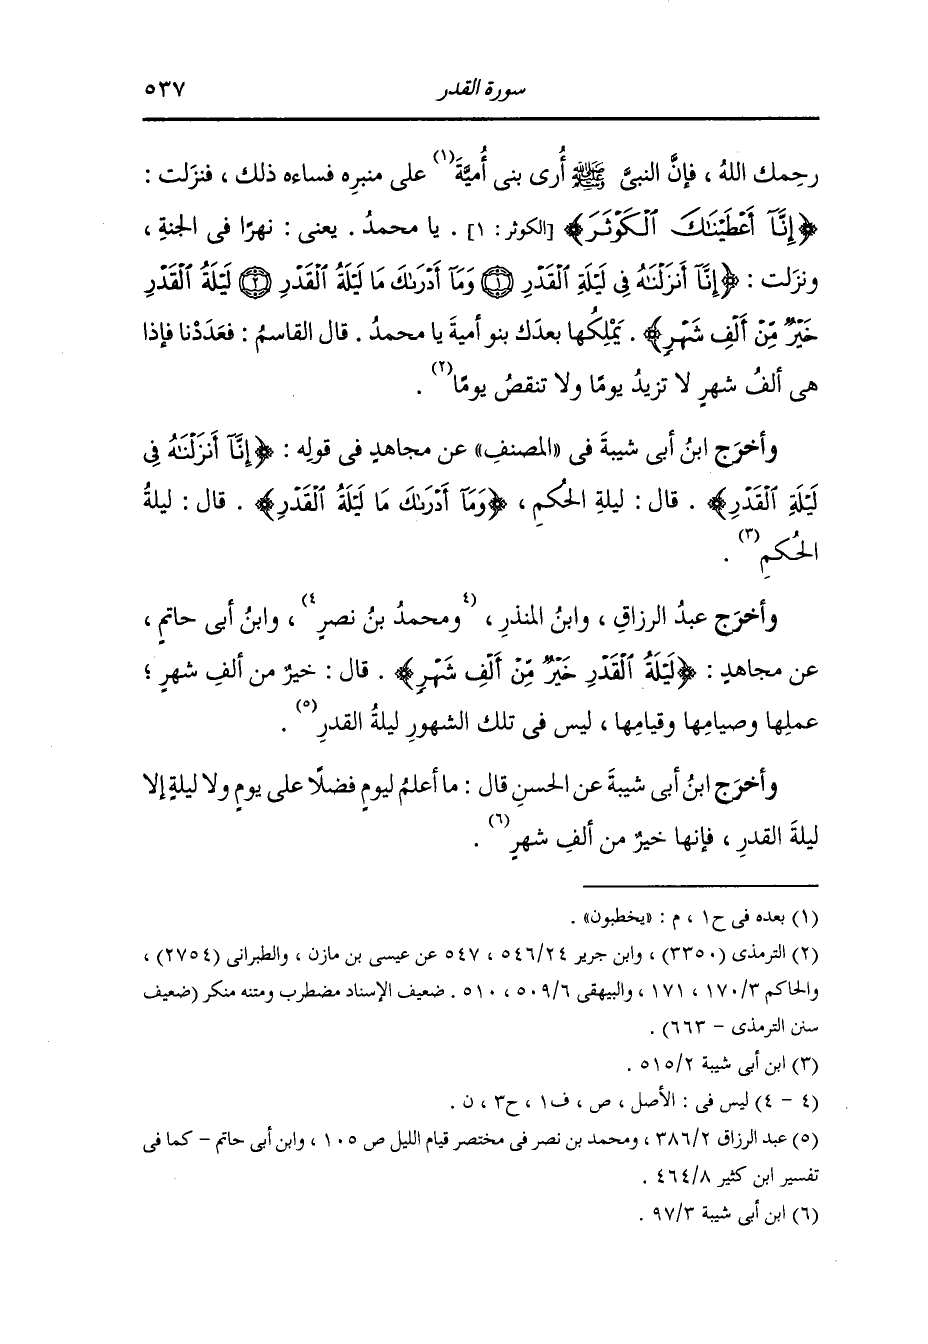 سورة القدر ٥٣٧
رحِمك اللهُ ، فإنَّ النبيَّ ﷺ أُرى بنى أُميَّةَ(١) على منبرِه فساءه ذلك ، فنزَلت :
﴿إِنَّآ أَعْطَيْنَٰكَ ٱلْكَوْثَرَ﴾ [الكوثر : ١] . يا محمدُ . يعنى : نهرًا فى الجنةِ ،
ونزَلت : ﴿إِنَّآ أَنزَلْنَٰهُ فِى لَيْلَةِ ٱلْقَدْرِ ۝١ وَمَآ أَدْرَىٰكَ مَا لَيْلَةُ ٱلْقَدْرِ ۝٢ لَيْلَةُ ٱلْقَدْرِ
خَيْرٌ مِّنْ أَلْفِ شَهْرٍ﴾ . يَمْلِكُها بعدَك بنو أميةَ يا محمدُ . قال القاسمُ : فعَدَدْنا فإذا
هى ألفُ شهرٍ لا تزيدُ يومًا ولا تنقصُ يومًا(٢) .
وأخرَج ابنُ أبى شيبةَ فى «المصنفِ» عن مجاهدٍ فى قولِه : ﴿إِنَّآ أَنزَلْنَٰهُ فِى
لَيْلَةِ ٱلْقَدْرِ﴾ . قال : ليلةِ الحُكمِ ، ﴿وَمَآ أَدْرَىٰكَ مَا لَيْلَةُ ٱلْقَدْرِ﴾ . قال : ليلةُ
الحُكمِ(٣) .
وأخرَج عبدُ الرزاقِ ، وابنُ المنذرِ ، (٤ومحمدُ بنُ نصرٍ٤) ، وابنُ أبى حاتمٍ ،
عن مجاهدٍ : ﴿لَيْلَةُ ٱلْقَدْرِ خَيْرٌ مِّنْ أَلْفِ شَهْرٍ﴾ . قال : خيرٌ من ألفِ شهرٍ ؛
عملِها وصيامِها وقيامِها ، ليس فى تلك الشهورِ ليلةُ القدرِ(٥) .
وأخرَج ابنُ أبى شيبةَ عن الحسنِ قال : ما أعلمُ ليومٍ فضلًا على يومٍ ولا ليلةٍ إلا
ليلةَ القدرِ ، فإنها خيرٌ من ألفِ شهرٍ(٦) .
(١) بعده فى ح١ ، م : «يخطبون» .
(٢) الترمذى (٣٣٥٠) ، وابن جرير ٥٤٦/٢٤ ، ٥٤٧ عن عيسى بن مازن ، والطبرانى (٢٧٥٤) ،
والحاكم ١٧٠/٣ ، ١٧١ ، والبيهقى ٥٠٩/٦ ، ٥١٠ . ضعيف الإسناد مضطرب ومتنه منكر (ضعيف
سنن الترمذى - ٦٦٣) .
(٣) ابن أبى شيبة ٥١٥/٢ .
(٤ - ٤) ليس فى : الأصل ، ص ، ف١ ، ح٣ ، ن .
(٥) عبد الرزاق ٣٨٦/٢ ، ومحمد بن نصر فى مختصر قيام الليل ص ١٠٥ ، وابن أبى حاتم - كما فى
تفسير ابن كثير ٤٦٤/٨ .
(٦) ابن أبى شيبة ٩٧/٣ .